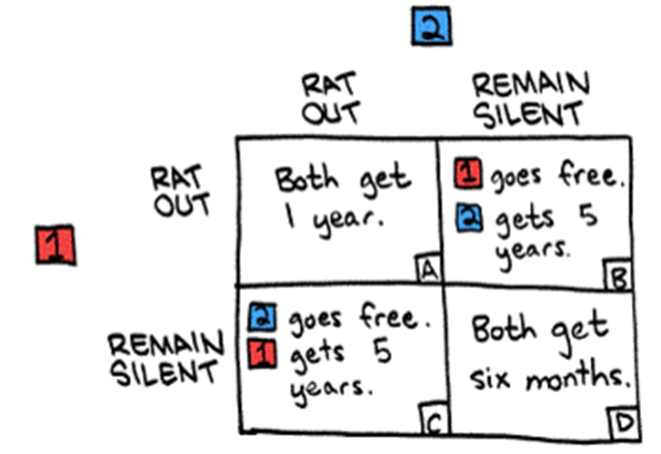 2
RAT
OUT
REMAIN
SILENT
RAT
OUT
Both get
1 year.
A
1 goes free.
2 gets 5
years.
B
1
REMAIN
SILENT
2 goes free.
1 gets 5
years.
C
Both get
six months.
D